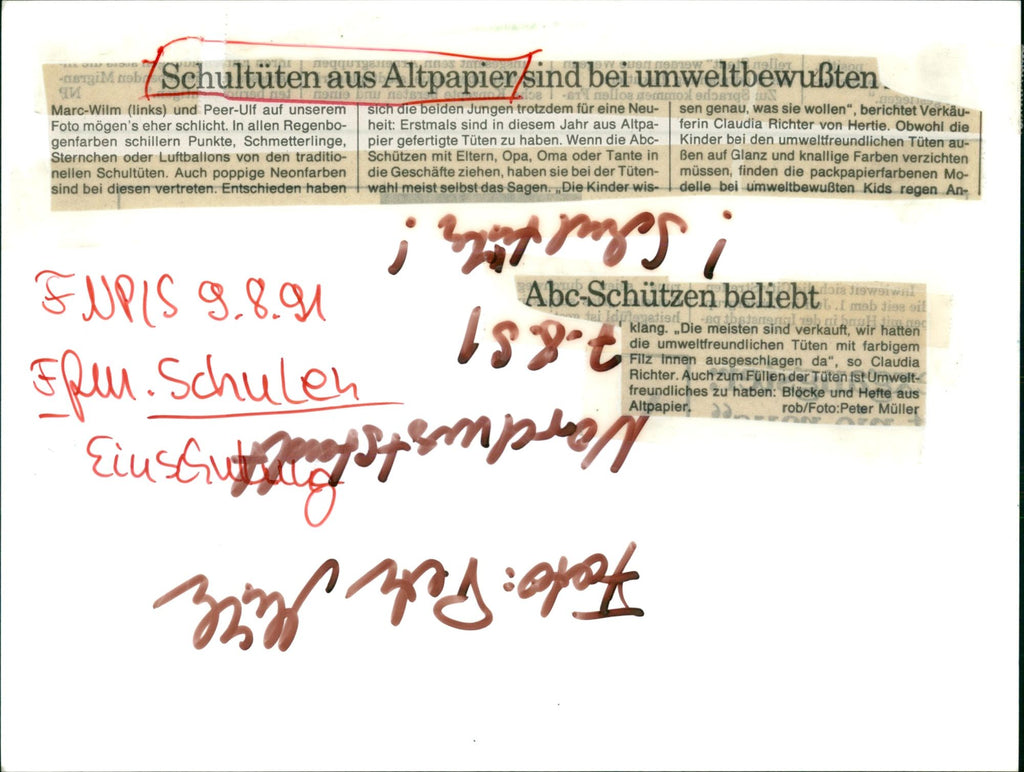 Schultüten aus Altpapier sind bei umweltbewußten
Marc-Wilm (links) und Peer-Ulf auf unserem
Foto mögen's eher schlicht. In allen Regenbo-
genfarben schillern Punkte, Schmetterlinge,
Sternchen oder Luftballons von den traditio-
nellen Schultüten. Auch poppige Neonfarben
sind bei diesen vertreten. Entschieden haben
sich die beiden Jungen trotzdem für eine Neu-
heit: Erstmals sind in diesem Jahr aus Altpa-
pier gefertigte Tüten zu haben. Wenn die Abc-
Schützen mit Eltern, Opa, Oma oder Tante in
die Geschäfte ziehen, haben sie bei der Tüten-
wahl meist selbst das Sagen. „Die Kinder wis-
sen genau, was sie wollen“, berichtet Verkäu-
ferin Claudia Richter von Hertie. Obwohl die
Kinder bei den umweltfreundlichen Tüten au-
ßen auf Glanz und knallige Farben verzichten
müssen, finden die packpapierfarbenen Mo-
delle bei umweltbewußten Kids regen An-
! Schultüten !
Abc-Schützen beliebt
klang. „Die meisten sind verkauft, wir hatten
die umweltfreundlichen Tüten mit farbigem
Filz innen ausgeschlagen da“, so Claudia
Richter. Auch zum Füllen der Tüten ist Umwelt-
freundliches zu haben: Blöcke und Hefte aus
Altpapier. rob/Foto:Peter Müller
FNP/S 9.8.91
7.8.91
Ffm. Schulen
Einschulung
Nordweststadt
Foto: Peter Müller